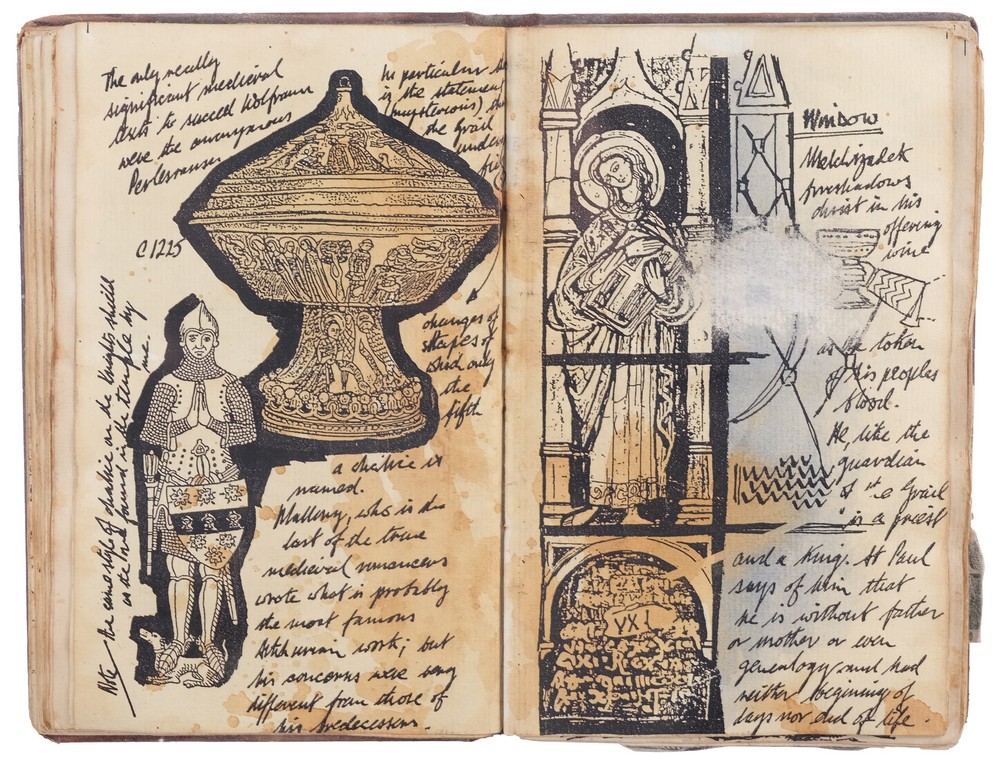 The only really
significant medieval
texts to succeed Wolfram
were the anonymous
Perlesvaus
his particular
is the statement
(mysterious)
the Grail
under
C1225
changes of
shapes of
which only
the
fifth
a chalice is
named.
Mallory, who is the
last of the true
medieval romancers
wrote what is probably
the most famous
Arthurian work; but
his concerns were very
different from those of
his predecessors.
Note the same style of chalice on the knights shield
as the one found in the temple by
me.
Window
Melchizadek
foreshadows
christ in his
offering
wine
as a token
of his peoples
blood.
He, like the
guardian
of the Grail
is a priest
and a King. St Paul
says of him that
he is without father
or mother or even
genealogy and had
neither beginning of
days nor end of life.